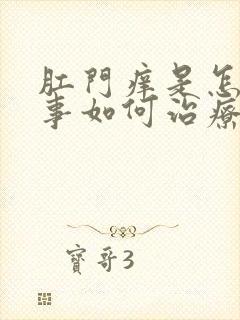 肛門癢是怎
事如何治療
寶哥3